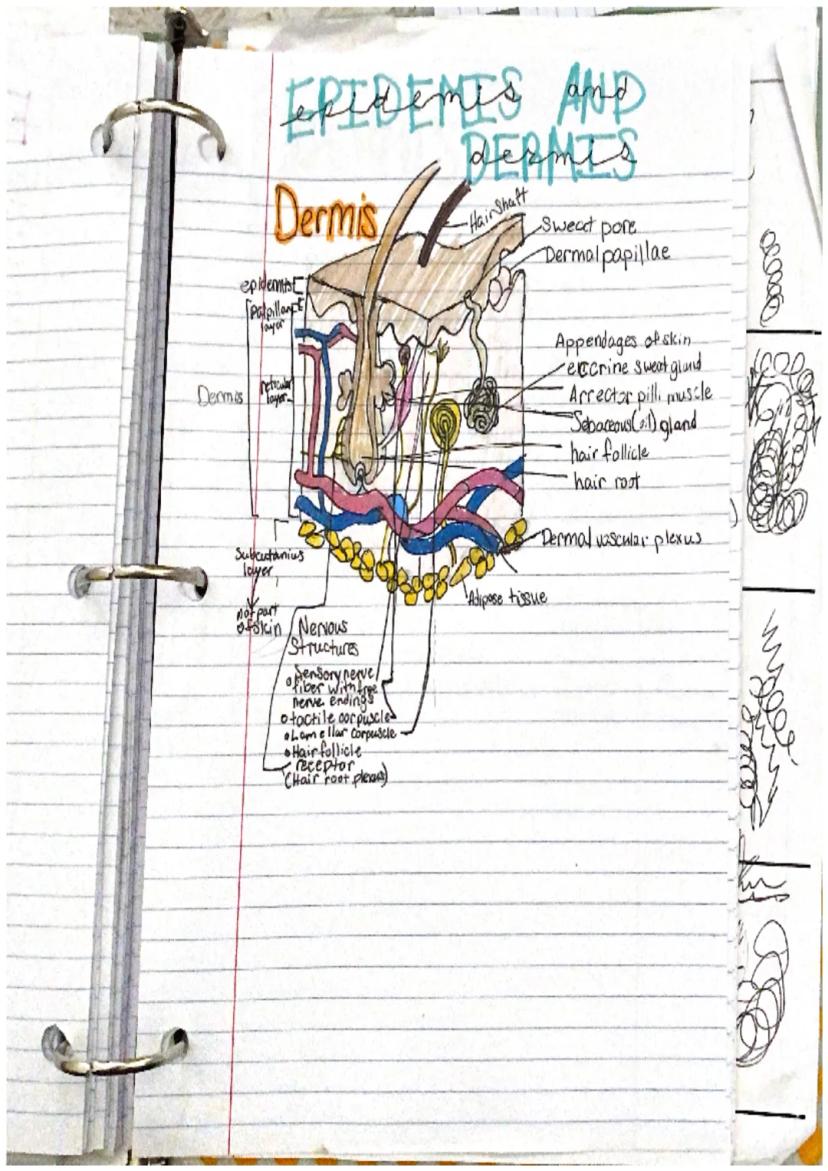 EPIDEMIS AND
epidemis and
DERMIS
dermis
Dermis
Hair Shaft
Sweat pore
Dermal papillae
epidemis
Papillary
layer
Dermis
reticular
layer
Appendages of skin
eccrine sweat gland
Arrector pilli muscle
Sebaceous (oil) gland
hair follicle
hair root
Dermal vascular plexus
Adipose tissue
Subcutanius
layer
not part
of skin
Nervous
Structures
Sensory nerve
fiber with free
nerve endings
tactile corpuscle
Lamellar corpuscle
Hair follicle
receptor
(Hair root plexus)